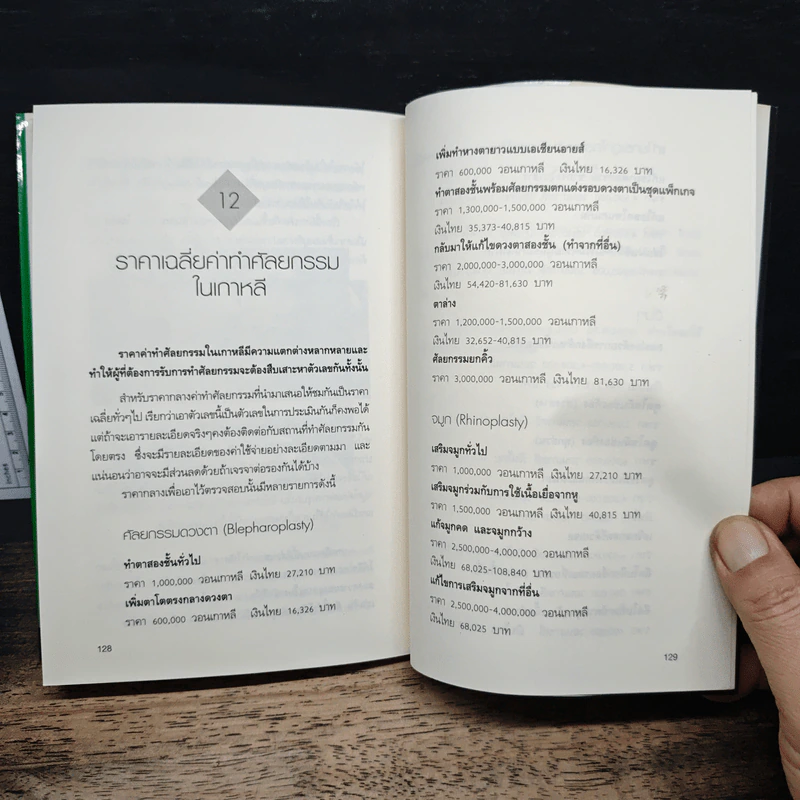 12
ราคาเฉลี่ยค่าทำศัลยกรรม
ในเกาหลี
ราคาค่าทำศัลยกรรมในเกาหลีมีความแตกต่างหลากหลายและ
ทำให้ผู้ที่ต้องการรับการทำศัลยกรรมจะต้องสืบเสาะหาตัวเลขกันทั้งนั้น
สำหรับราคากลางค่าทำศัลยกรรมที่นำมาเสนอให้ชมกันเป็นราคา
เฉลี่ยทั่วๆไป เรียกว่าเอาตัวเลขนี้เป็นตัวเลขในการประเมินกันก็คงพอได้
แต่ถ้าจะเอารายละเอียดจริงๆคงต้องติดต่อกับสถานที่ทำศัลยกรรมกัน
โดยตรง ซึ่งจะมีรายละเอียดของค่าใช้จ่ายอย่างละเอียดตามมา และ
แน่นอนว่าอาจจะมีส่วนลดด้วยถ้าเจรจาต่อรองกันได้บ้าง
ราคากลางเพื่อเอาไว้ตรวจสอบนั้นมีหลายรายการดังนี้
ศัลยกรรมดวงตา (Blepharoplasty)
ทำตาสองชั้นทั่วไป
ราคา 1,000,000 วอนเกาหลี เงินไทย 27,210 บาท
เพิ่มตาโตตรงกลางดวงตา
ราคา 600,000 วอนเกาหลี เงินไทย 16,326 บาท
128
เพิ่มทำหางตายาวแบบเอเชียนอายส์
ราคา 600,000 วอนเกาหลี เงินไทย 16,326 บาท
ทำตาสองชั้นพร้อมศัลยกรรมตกแต่งรอบดวงตาเป็นชุดแพ็กเกจ
ราคา 1,300,000-1,500,000 วอนเกาหลี
เงินไทย 35,373-40,815 บาท
กลับมาให้แก้ไขดวงตาสองชั้น (ทำจากที่อื่น)
ราคา 2,000,000-3,000,000 วอนเกาหลี
เงินไทย 54,420-81,630 บาท
ตาล่าง
ราคา 1,200,000-1,500,000 วอนเกาหลี
เงินไทย 32,652-40,815 บาท
ศัลยกรรมยกคิ้ว
ราคา 3,000,000 วอนเกาหลี เงินไทย 81,630 บาท
จมูก (Rhinoplasty)
เสริมจมูกทั่วไป
ราคา 1,000,000 วอนเกาหลี เงินไทย 27,210 บาท
เสริมจมูกร่วมกับการใช้เนื้อเยื่อจากหู
ราคา 1,500,000 วอนเกาหลี เงินไทย 40,815 บาท
แก้จมูกคด และจมูกกว้าง
ราคา 2,500,000-4,000,000 วอนเกาหลี
เงินไทย 68,025-108,840 บาท
แก้ไขการเสริมจมูกจากที่อื่น
ราคา 2,500,000-4,000,000 วอนเกาหลี
เงินไทย 68,025 บาท
129